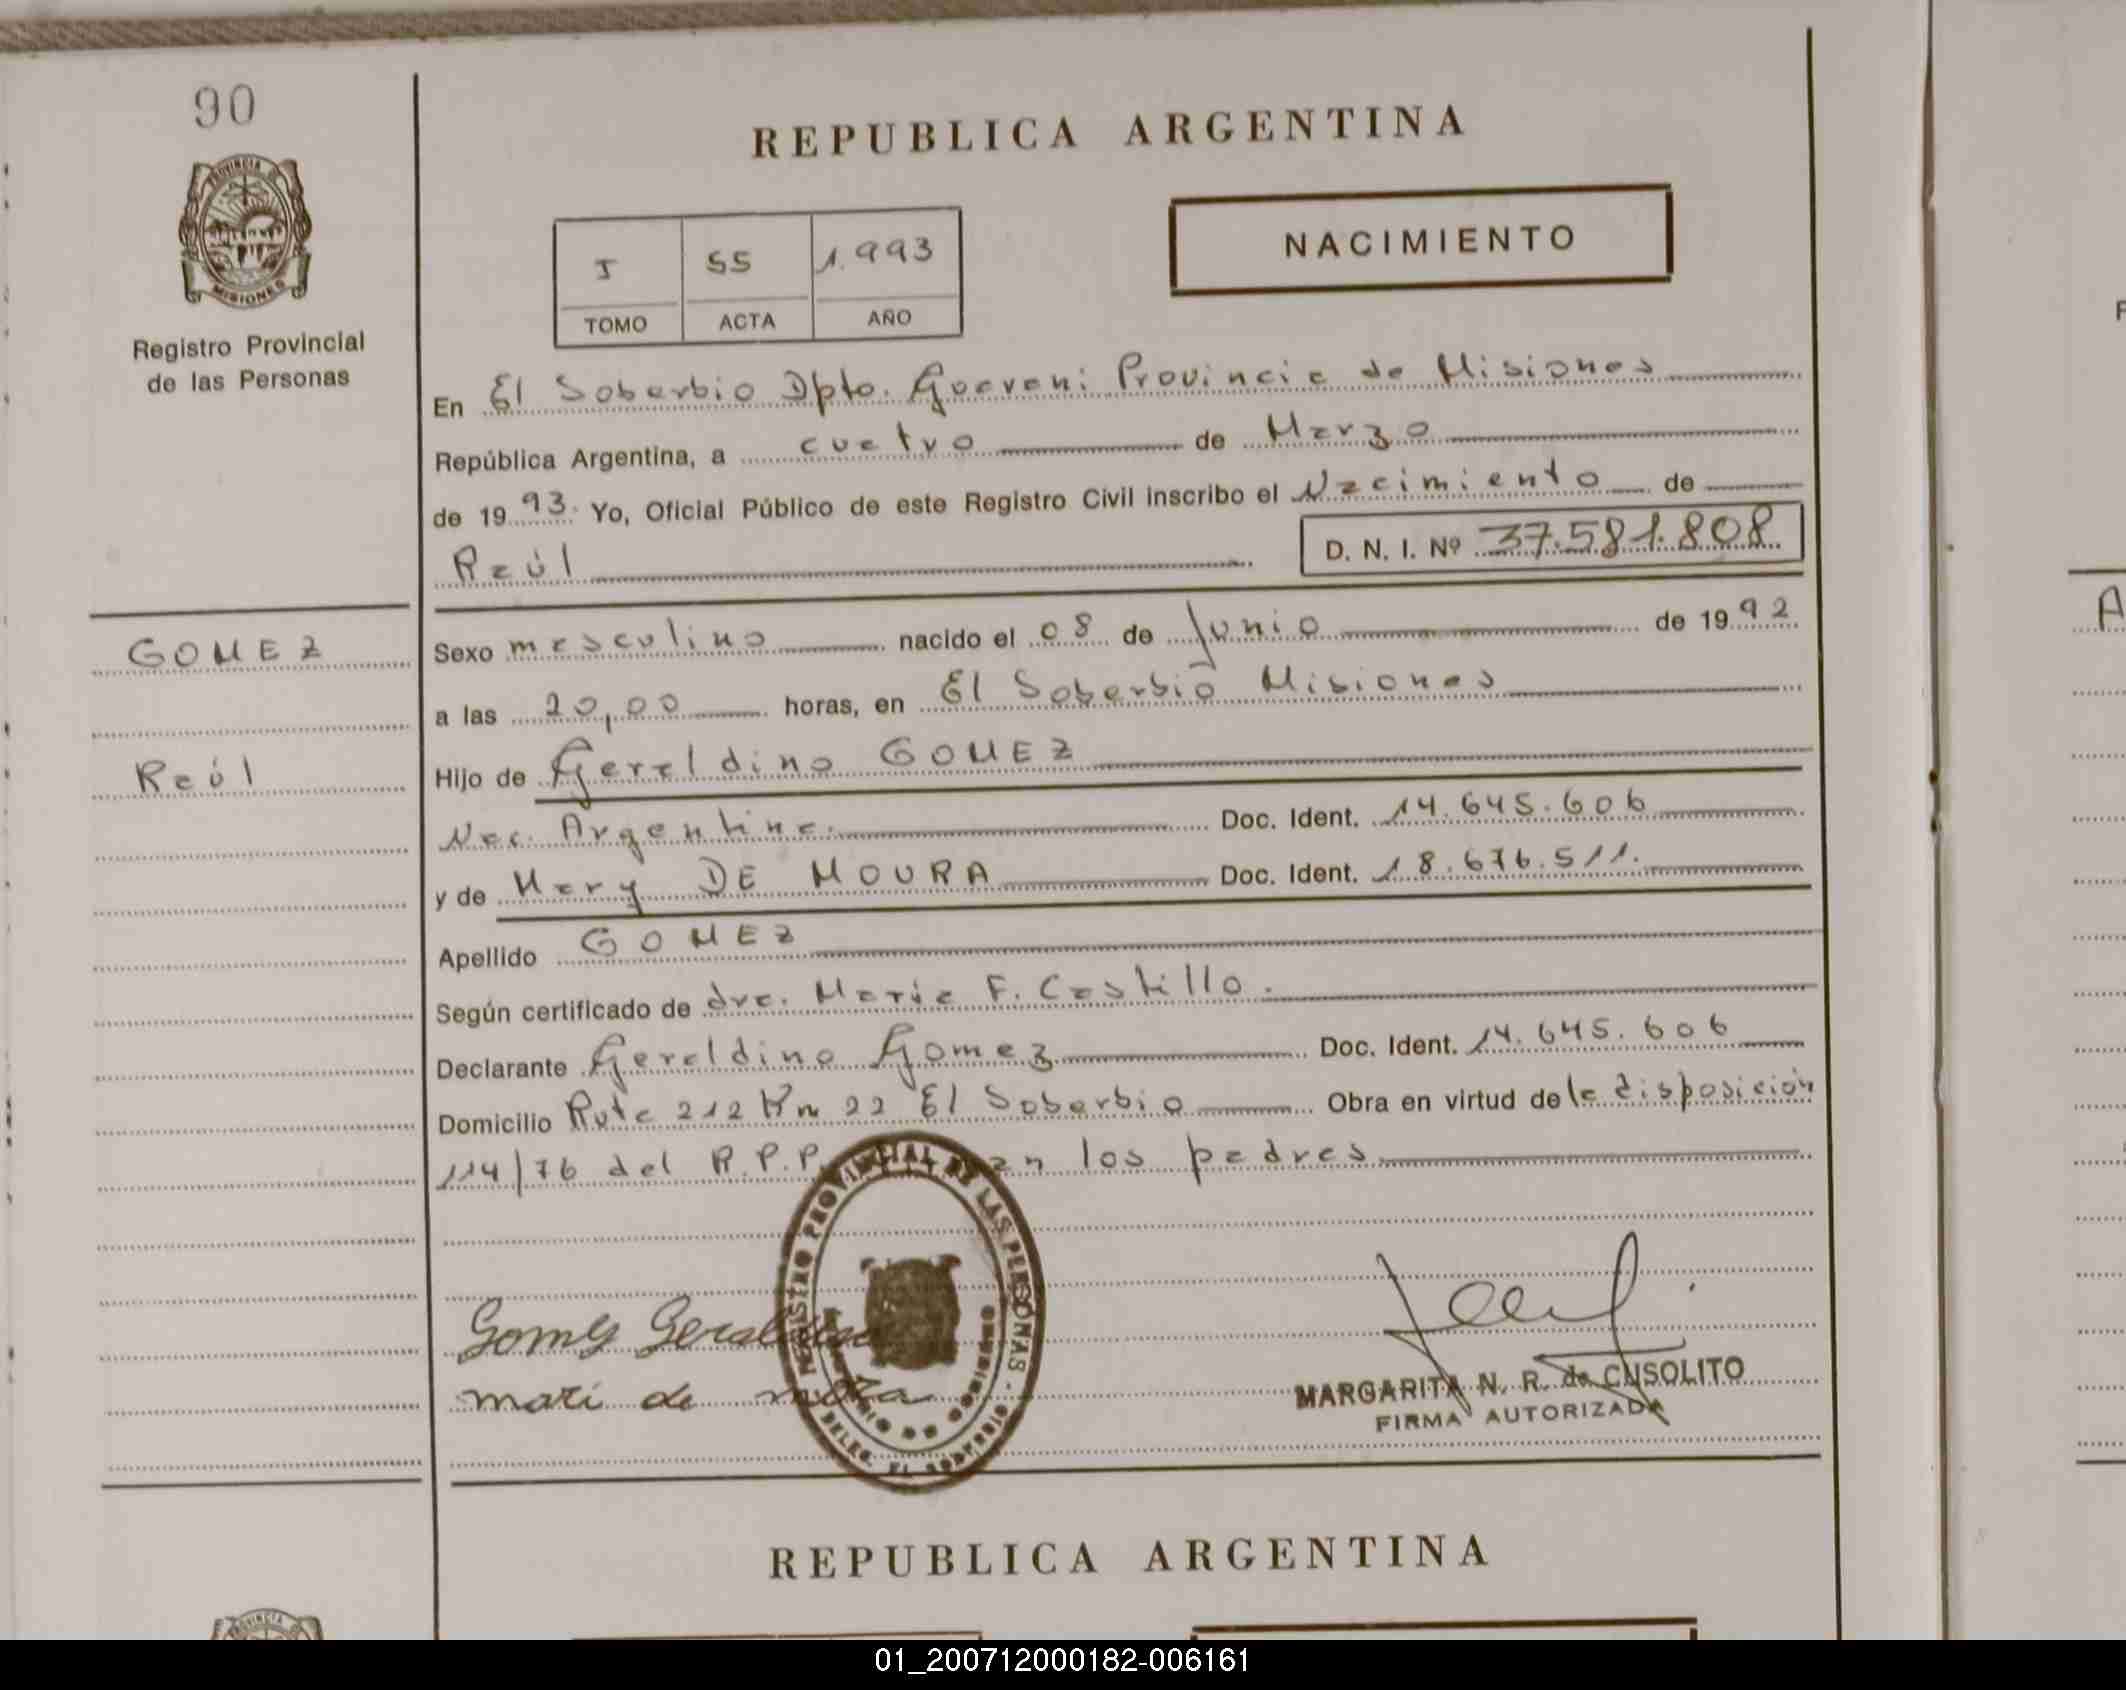 90
REPUBLICA ARGENTINA
PROVINCIA
MISIONES
I 55 1.993
TOMO ACTA AÑO
NACIMIENTO
Registro Provincial
de las Personas
En El Soberbio Dpto. Guarani Provincia de Misiones
República Argentina, a cuatro de Marzo
de 1993. Yo, Oficial Público de este Registro Civil inscribo el Nacimiento de
Raúl D. N. I. Nº 37.581.808
GOMEZ
Raúl
Sexo masculino nacido el 08 de Junio de 1992
a las 20,00 horas, en El Soberbio Misiones
Hijo de Geraldino GOMEZ
Nac. Argentina. Doc. Ident. 14.645.606
y de Mary DE MOURA Doc. Ident. 18.676.511.
Apellido GOMEZ
Según certificado de dra. Maria F. Castillo.
Declarante Geraldino Gomez Doc. Ident. 14.645.606
Domicilio Ruta 212 Km 22 El Soberbio Obra en virtud de la disposición
114/76 del R.P.P. los padres
REGISTRO PROVINCIAL DE LAS PERSONAS
DELEG. EL SOBERBIO
Gomez
mari de
MARGARITA N. R. de CUSOLITO
FIRMA AUTORIZADA
REPUBLICA ARGENTINA
PROVINCIA
01_200712000182-006161